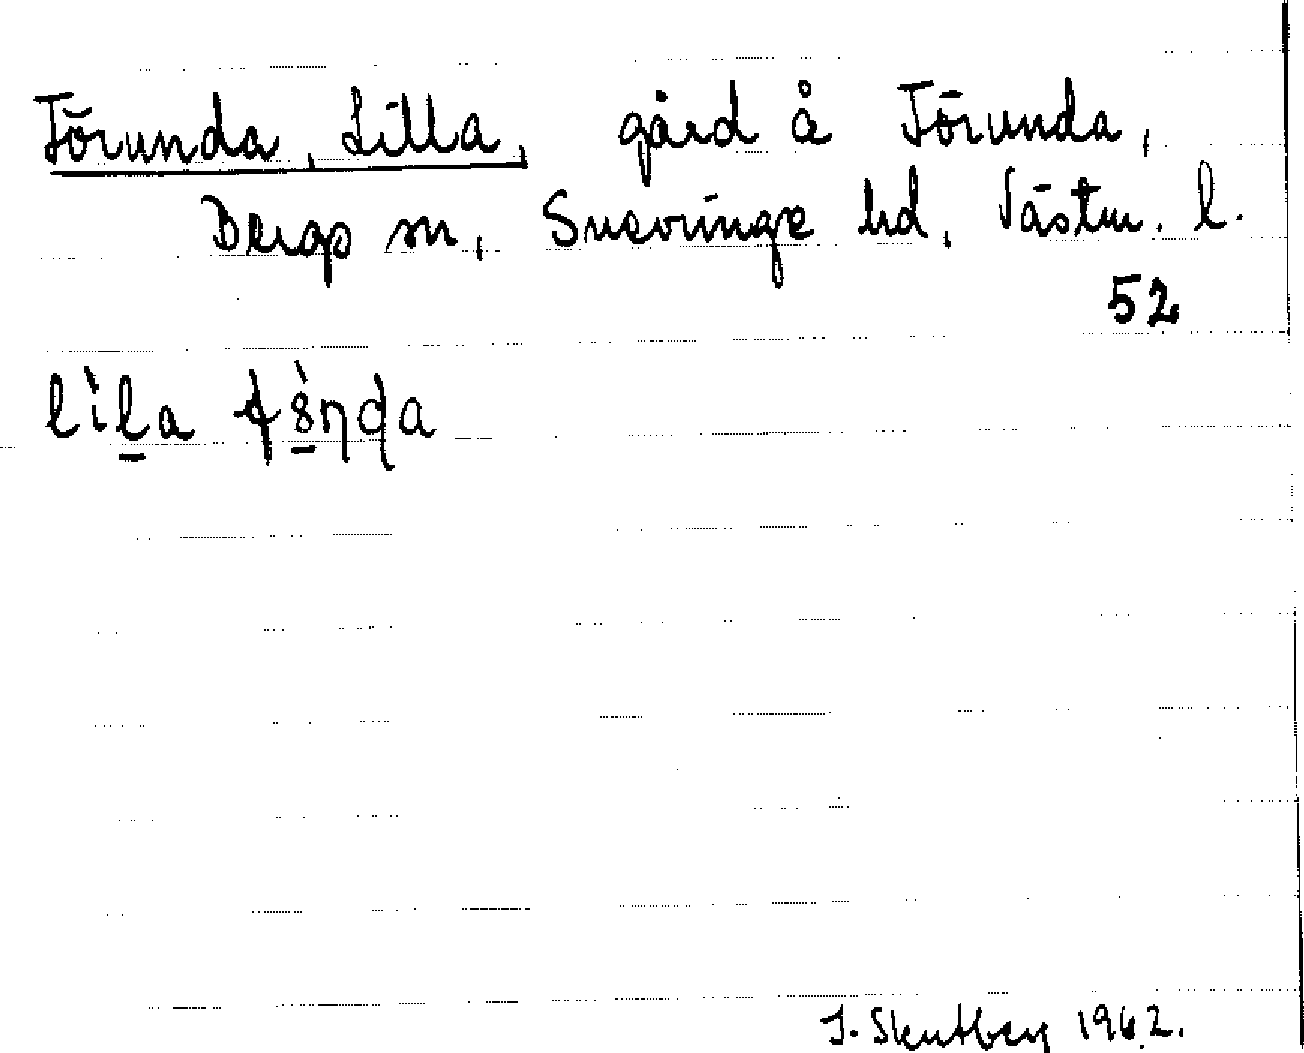 Törunda, Lilla, gård å Törunda,
Bergs sn, Snevringe hd, Västm. l.
52
lìla tø̀ɳɖa
J. Skutberg 1962.